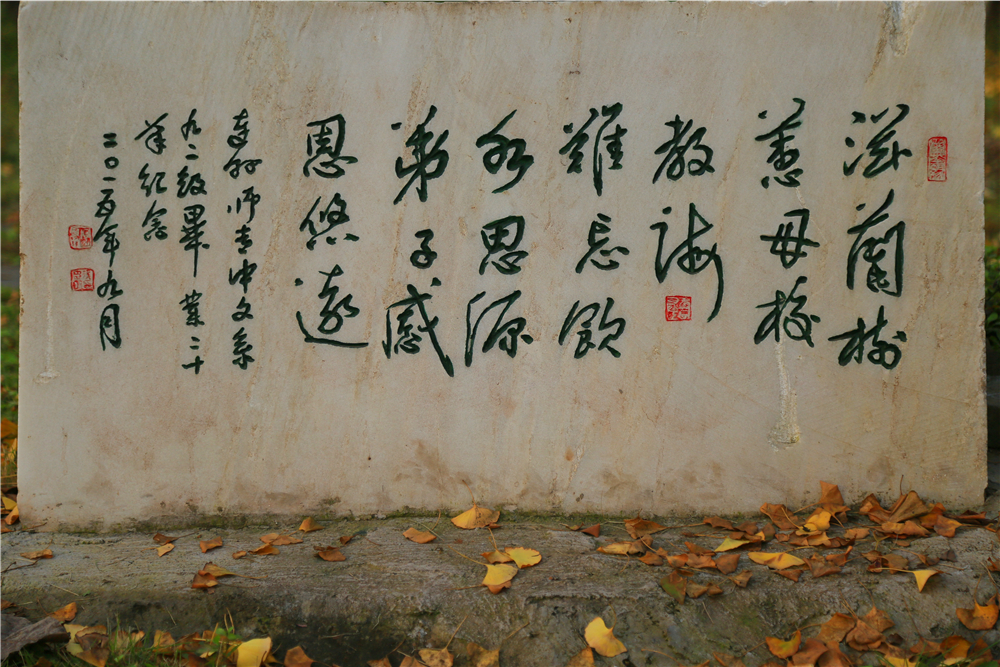 滋蘭樹
蕙母校
教誨
難忘飲
水思源
弟子感
恩悠遠
達縣师专中文系
九二級畢業二十
年紀念
二〇一五年九月